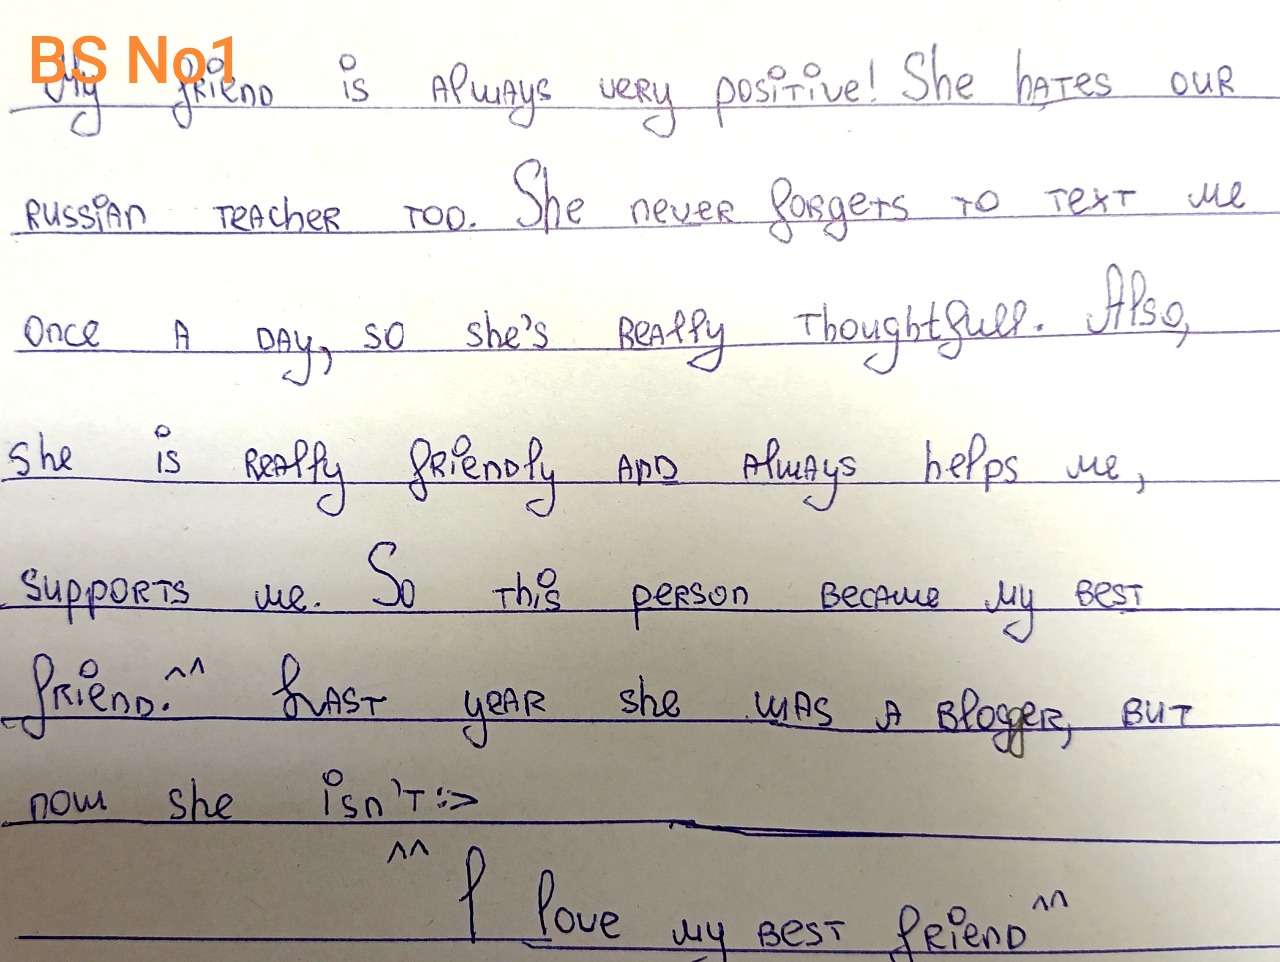 BS No1
My friend is always very positive! She hates our
russian teacher too. She never forgets to text me
once a day, so she's really thoughtfull. Also,
she is really friendly and always helps me,
supports me. So this person became my best
friend.^^ Last year she was a blogger, but
now she isn't :>
^^ I love my best friend ^^